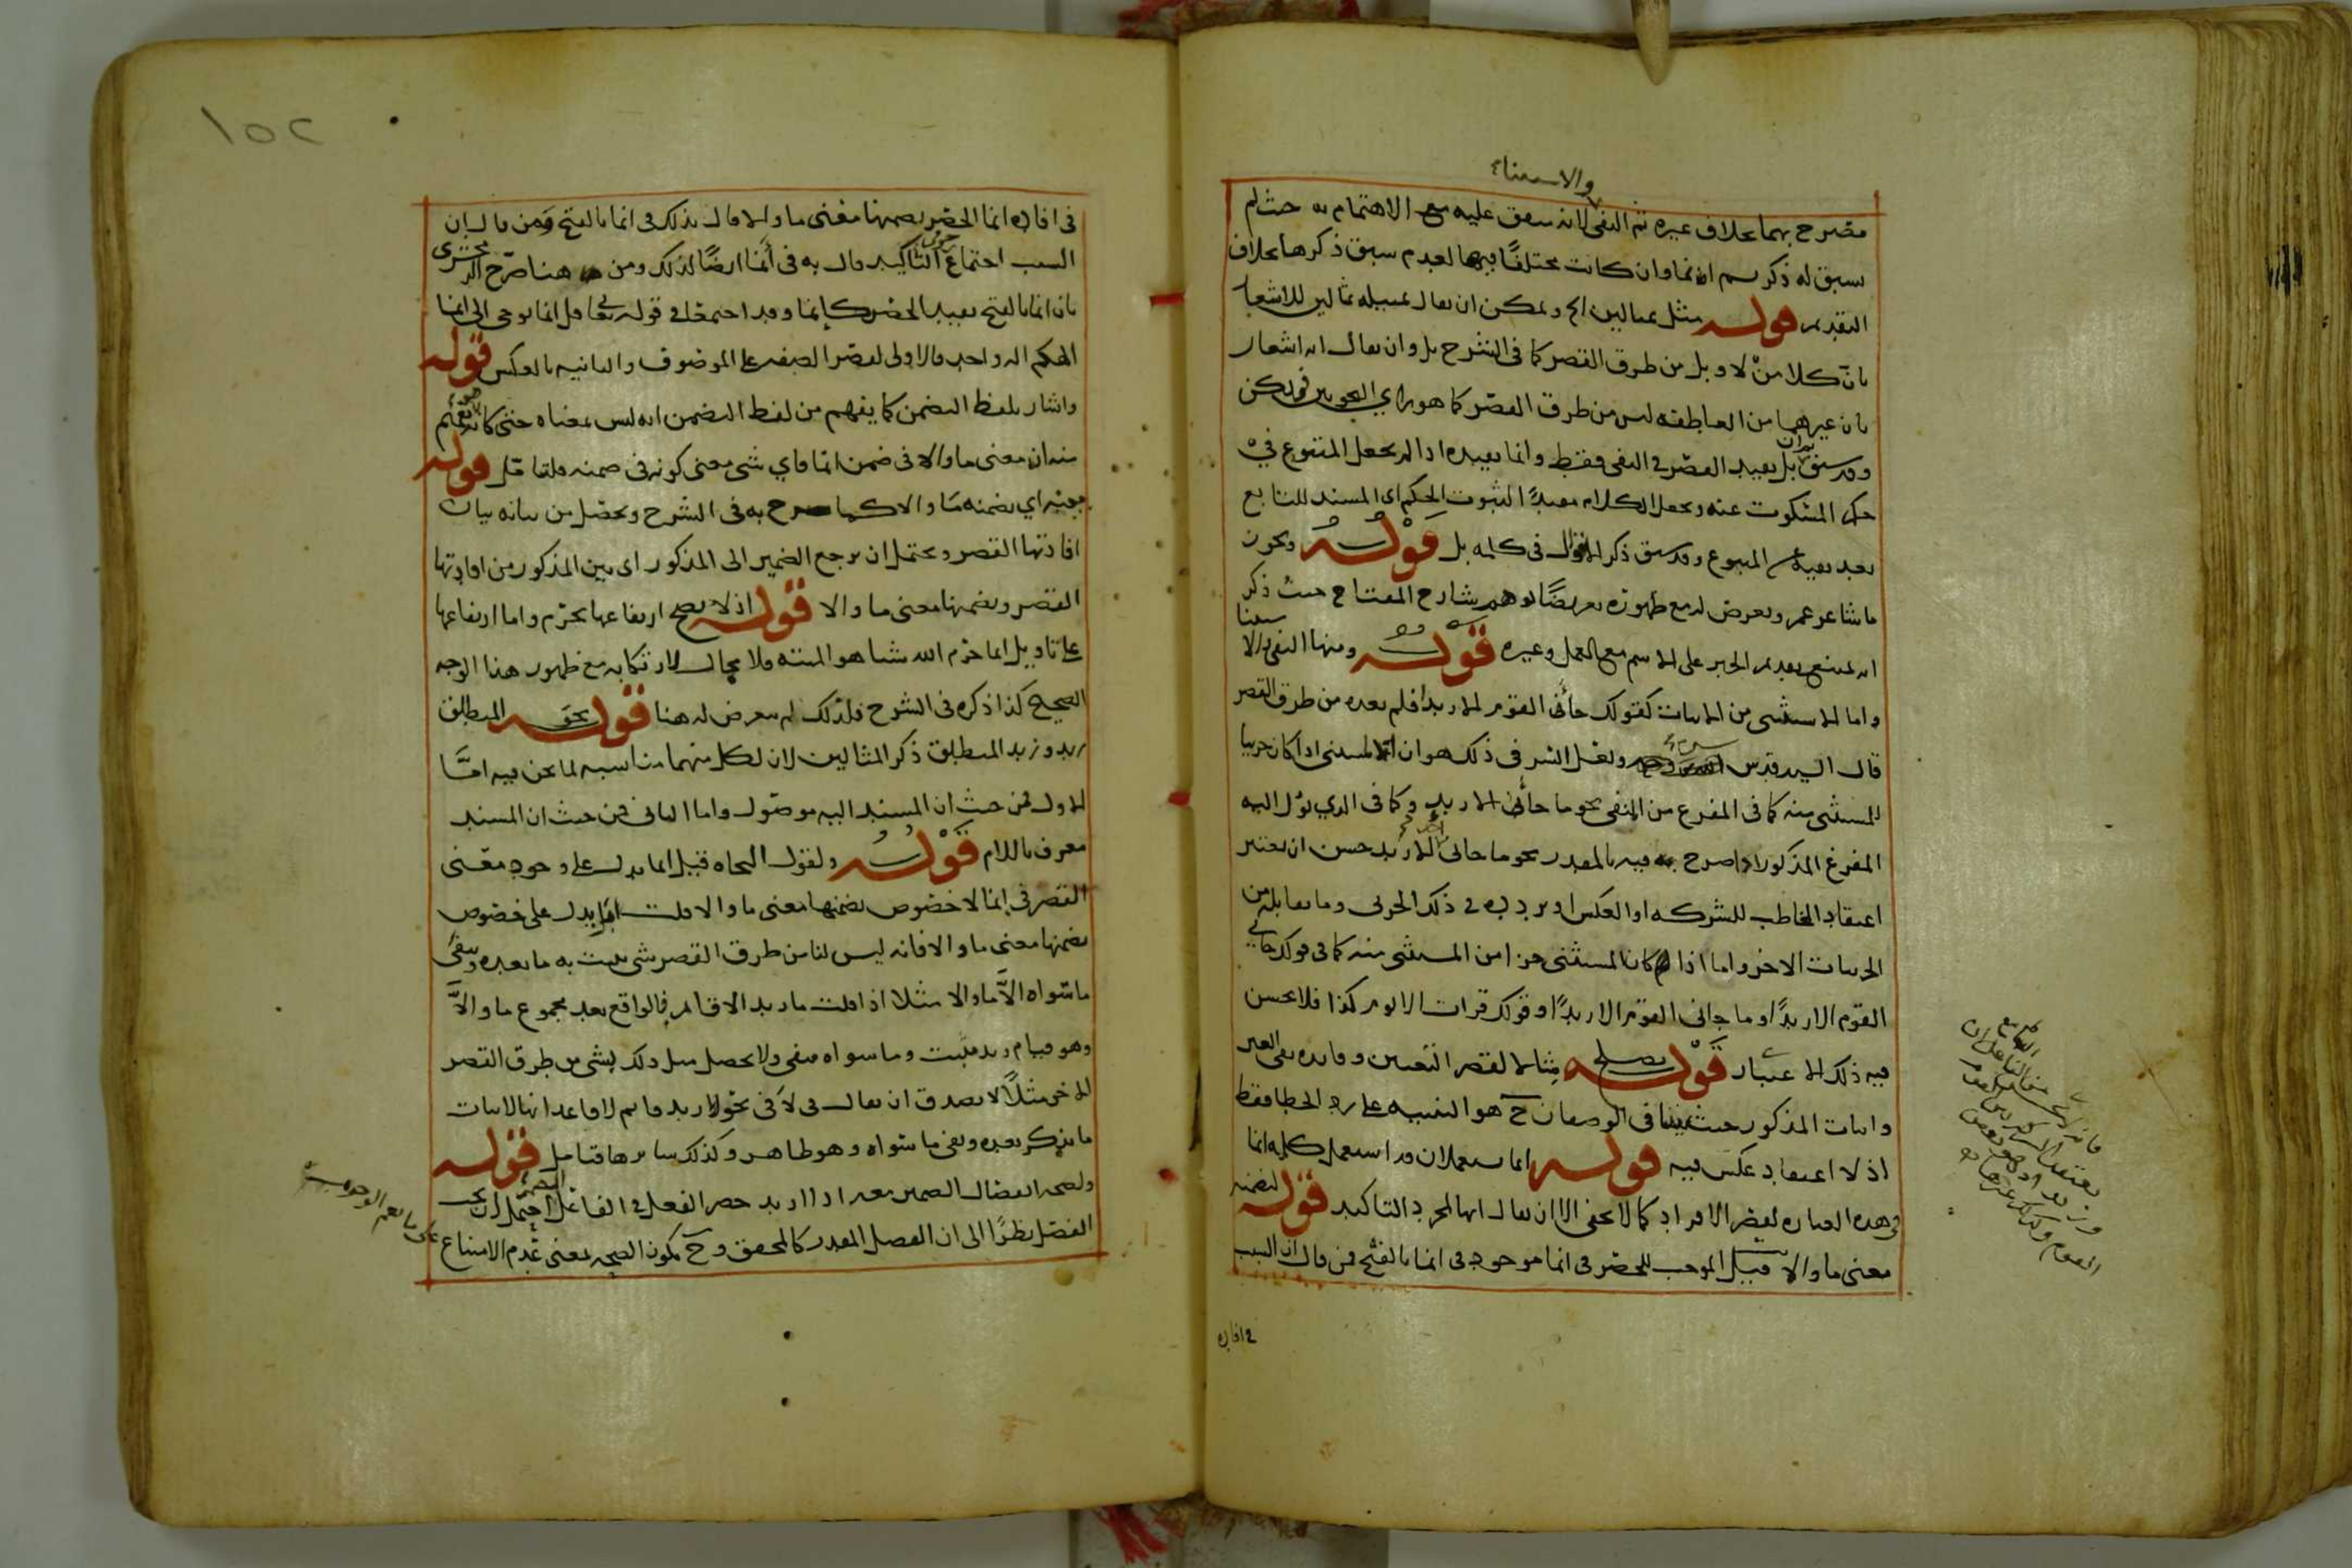 والاستثناء
مصرح بهما بخلاف غيره ثم النفى لانه سبق عليه مع الاهتمام به حيث لم
سبق له ذكر ثم انما وان كانت مختلفًا فيها لعدم سبق ذكرها بخلاف
التقديم قوله مثل بمثالين الخ ويمكن ان يقال تمثيله بمثالين للاشعار
بان كلا من لا وبل من طرق القصر كما فى الشرح بل وان يقال انه اشعار
بان غيرهما من العاطفة ليس من طرق القصر كما هو راي النحويين فى لكن
وقد سبق ان بل يفيد القصر فى النفى فقط وانما يفيده اذا لم يجعل المتبوع فى
حكم المسكوت عنه ويجعل الكلام مفيدًا لثبوت الحكم اى المسند للتابع
بعد نفيه عن المتبوع وقد سبق ذكر الاقوال فى كلمة بل قوله ونحو
ما شاعر عمرو تعرض له مع ظهوره تعريضًا لوهم شارح المفتاح حيث ذكر
انه يمتنع تقديم الخبر على الاسم مع العمل وغيره قوله ومنها النفى والاستثنا
واما الاستثنى من الاثبات كقولك جائنى القوم الا زيدا فلم يعده من طرق القصر
قال السيد قدس سره ولعل السر فى ذلك هو ان المستثنى اذا كان جزئيا
للمستثنى منه كما فى المفرغ من المنفى نحو ما جائنى الا زيد وكما فى الذي يؤل اليه
المفرغ المذكور اذا صرح فيه بالمقدر نحو ما جائنى احد الا زيد حسن ان يعتبر
اعتقاد المخاطب للشركة او العكس او تردده فى ذلك الجزئى وما يقابله من
الجزئيات الاخر واما اذا كان المستثنى جزا من المستثنى منه كما فى قولك جائنى
القوم الا زيدًا او ما جائنى القوم الا زيدًا او قولك قرات الا يوم كذا فلا يحسن
فيه ذلك الاعتبار قوله يصلح مثالا لقصر التعيين وفائدة نفى الغير
واثبات المذكور حيث تنافى الوصفان ح هو التنبيه على رد الخطا فقط
اذ لا اعتقاد عكس فيه قوله انما يستعملان قد استعمل كلمة انما
فى هذه العبارة لغير الافراد كما لا يخفى الا ان يقال انها لمجرد التاكيد قوله لتضمنه
معنى ما والا قيل الموجب للحصر فى انما موجود فى انما بالفتح فمن قال ان السبب
فى افادة
١٥٢
فى افادة انما الحصر تضمنها معنى ما والا قال بذلك فى انما بالفتح ومن قال ان
السبب اجتماع حرفى التاكيد قال به فى أنما ايضًا لذلك ومن هنا صرح الزمخشرى
بان انما بالفتح تفيد الحصر كإنما وقد اجتمعا فى قوله تعا قل انما يوحى الى انما
الهكم اله واحد فالاولى لقصر الصفة على الموصوف والثانية بالعكس قوله
واشار بلفظ التضمن كما يفهم من لفظ التضمن انه ليس بمعناه حتى كانه
منه ان معنى ما والا فى ضمن انما فاي شى معنى كونه فى ضمنه فلهذا قال قوله
اي تضمنه ما والا كما صرح به فى الشرح ويحصل من بيانه بيان
افادتها القصر ويحتمل ان يرجع الضمير الى المذكور اى بين المذكور من افادتها
القصر وتضمنها معنى ما والا قوله اذ لا يصح ارتفاعها بحرم واما ارتفاعها
على تاويل انما حرم الله شيا هو الميتة فلا مجال لارتكابه مع ظهور هذا الوجه
الصحيح كذا ذكره فى الشرح فلذلك لم يتعرض له هنا قوله نحو المنطلق
زيد وزيد المنطلق ذكر المثالين لان لكل منهما مناسبة لما نحن فيه امّا
الاول فمن حيث ان المسند اليه موصول واما الثانى فمن حيث ان المسند
معرف باللام قوله ولقول النحاه قيل انما يدل على وجود معنى
القصر فى إنما لا خصوص تضمنها معنى ما والا قلت انما يدل على خصوص
تضمنها معنى ما والا فانه ليس لنا من طرق القصر شى يثبت به ما بعده وينفى
ما سواه الاّ ما والا مثلا اذا قلت ما زيد الا قائم فالواقع بعد مجموع ما والاّ
وهو قيام زيد مثبت وما سواه منفى ولا يحصل مثل ذلك بشى من طرق القصر
الاخر مثلًا لا يصدق ان يقال فى لا فى نحو زيد قائم لا قاعد انها لاثبات
ما يذكر بعده ونفى ما سواه وهو ظاهر وكذلك سايرها فتامل قوله
ولصحة انفصال الضمير معه اذا اريد حصر الفعل فى الفاعل
الفصل نظرًا الى ان الفصل المقدر كالمحقق وح يكون الصحة بمعنى عدم الامتناع